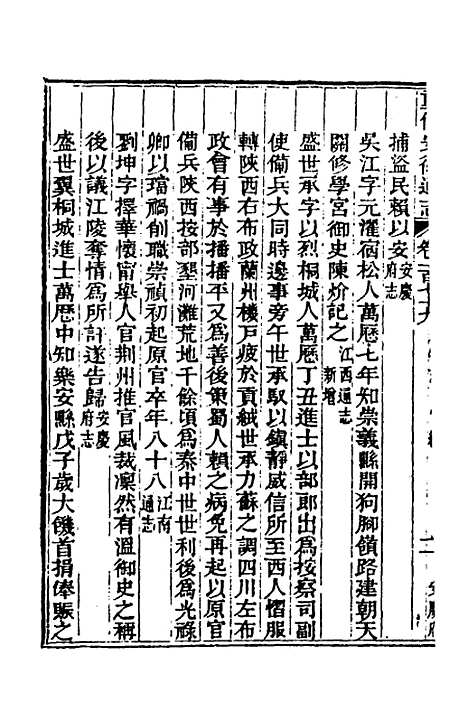 重修安徽通志 卷二百七十九
捕盜民賴以安安慶府志
吳江字元濯宿松人萬曆七年知崇義縣開狗腳嶺路建朝天
關修學宮御史陳炌記之江西通志新增
盛世承字以烈桐城人萬曆丁丑進士以部郎出為按察司副
使備兵大同時邊事旁午世承馭以鎮靜威信所至西人慴服
轉陝西右布政蘭州機戶疲於貢絨世承力蘇之調四川左布
政會有事於播播平又為善後策蜀人賴之病免再起以原官
備兵陝西按部墾河灘荒地千餘頃為秦中世世利後為光祿
卿以璫禍創職崇禎初起原官卒年八十八江南通志
劉坤字擇華懷甯舉人官荆州推官風裁凜然有溫御史之稱
後以議江陵奪情為所訐遂告歸安慶府志
盛世翼桐城進士萬曆中知樂安縣戊子歲大饑首捐俸賑之